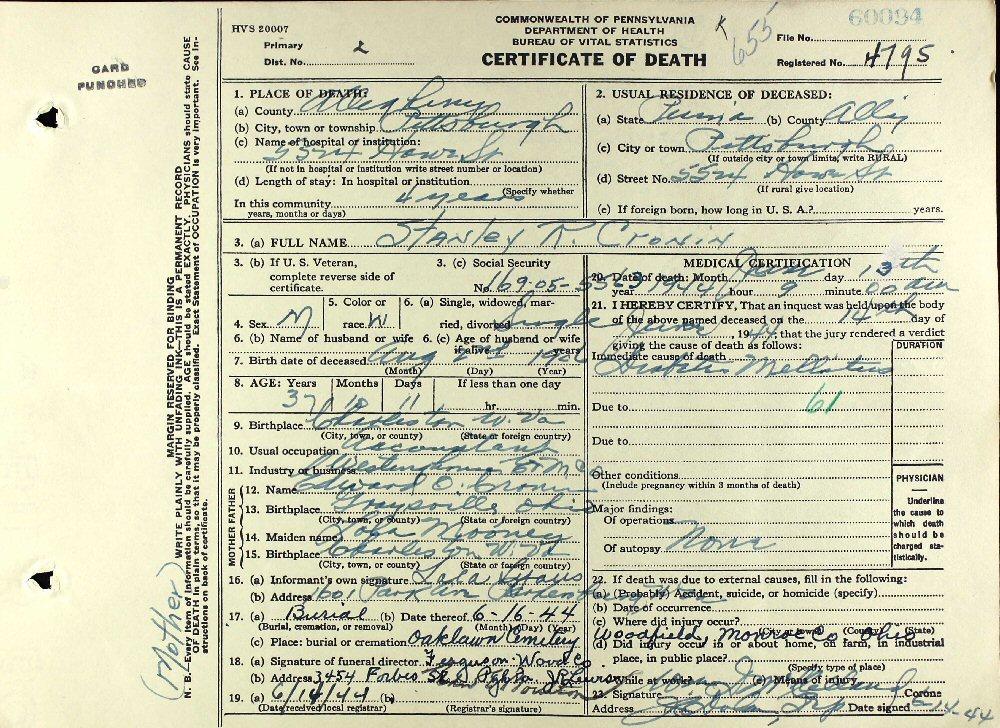 COMMONWEALTH OF PENNSYLVANIA
DEPARTMENT OF HEALTH
BUREAU OF VITAL STATISTICS
CERTIFICATE OF DEATH
HVS 20007
Primary
Dist. No. 2
K 655
60094
File No.
Registered No. 4795
CARD
PUNCHED
MARGIN RESERVED FOR BINDING
WRITE PLAINLY WITH UNFADING INK—THIS IS A PERMANENT RECORD
N. B.—Every item of information should be carefully supplied. AGE should be stated EXACTLY. PHYSICIANS should state CAUSE
OF DEATH in plain terms, so that it may be properly classified. Exact Statement of OCCUPATION is very important. See in-
structions on back of certificate.
(Mother)
1. PLACE OF DEATH:
(a) County Allegheny
(b) City, town or township Pittsburgh
(c) Name of hospital or institution:
5524 Howe St
(If not in hospital or institution write street number or location)
(d) Length of stay: In hospital or institution
(Specify whether
In this community 4 years
years, months or days)
2. USUAL RESIDENCE OF DECEASED:
(a) State Penna (b) County Alleg
(c) City or town Pittsburgh
(If outside city or town limits, write RURAL)
(d) Street No. 5524 Howe St
(If rural give location)
(e) If foreign born, how long in U. S. A.? years.
3. (a) FULL NAME Stanley R. Cronin
3. (b) If U. S. Veteran,
complete reverse side of
certificate.
3. (c) Social Security
No. 169-05-5563
4. Sex M
5. Color or
race W
6. (a) Single, widowed, mar-
ried, divorced Single
6. (b) Name of husband or wife
6. (c) Age of husband or wife
if alive years
7. Birth date of deceased Aug 2nd 1906
(Month) (Day) (Year)
8. AGE: Years Months Days If less than one day
37 10 11 hr. min.
9. Birthplace Charleston W. Va
(City, town, or county) (State or foreign country)
10. Usual occupation Accountant
11. Industry or business Westinghouse E & M Co
MOTHER FATHER
12. Name Edward C. Cronin
13. Birthplace Graysville Ohio
(City, town, or county) (State or foreign country)
14. Maiden name Lora Mooney
15. Birthplace Charleston W. Va
(City, town, or county) (State or foreign country)
16. (a) Informant's own signature
(b) Address 1601 Park
17. (a) Burial (b) Date thereof 6-16-44
(Burial, cremation, or removal) (Month) (Day) (Year)
(c) Place: burial or cremation Oaklawn Cemetery
Woodsfield, Monroe Co Ohio
18. (a) Signature of funeral director Ferguson-Wood Co
(b) Address 3454 Forbes St Pgh Pa
19. (a) 6/14/44 (b)
(Date received local registrar) (Registrar's signature)
MEDICAL CERTIFICATION
20. Date of death: Month June day 13th
year 1944 hour 9 minute 00 am
21. I HEREBY CERTIFY, That an inquest was held upon the body
of the above named deceased on the 14th day of
June, 1944, that the jury rendered a verdict
giving the cause of death as follows:
DURATION
Immediate cause of death
Diabetes Mellitus
61
Due to
Due to
Other conditions
(Include pregnancy within 3 months of death)
Major findings:
Of operations
Of autopsy None
PHYSICIAN
Underline
the cause to
which death
should be
charged sta-
tistically.
22. If death was due to external causes, fill in the following:
(a) (Probably) Accident, suicide, or homicide (specify)
(b) Date of occurrence
(c) Where did injury occur?
(City or town) (County) (State)
(d) Did injury occur in or about home, on farm, in industrial
place, in public place?
(Specify type of place)
While at work? (e) Means of injury
23. Signature Coroner
Address Date signed 6-14-44